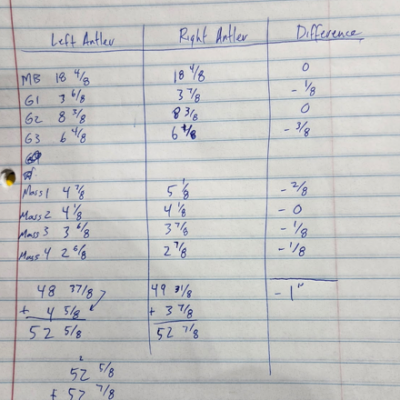 Left Antler Right Antler Difference
MB 18 4/8 18 4/8 0
G1 3 6/8 3 7/8 - 1/8
G2 8 3/8 8 3/8 0
G3 6 4/8 6 /8 - 3/8
Mass 1 4 7/8 5 1/8 - 2/8
Mass 2 4 1/8 4 1/8 - 0
Mass 3 3 6/8 3 7/8 - 1/8
Mass 4 2 6/8 2 7/8 - 1/8
48 37/8 49 31/8 - 1"
+ 4 5/8 + 3 7/8
52 5/8 52 7/8
52 5/8
+ 52 7/8